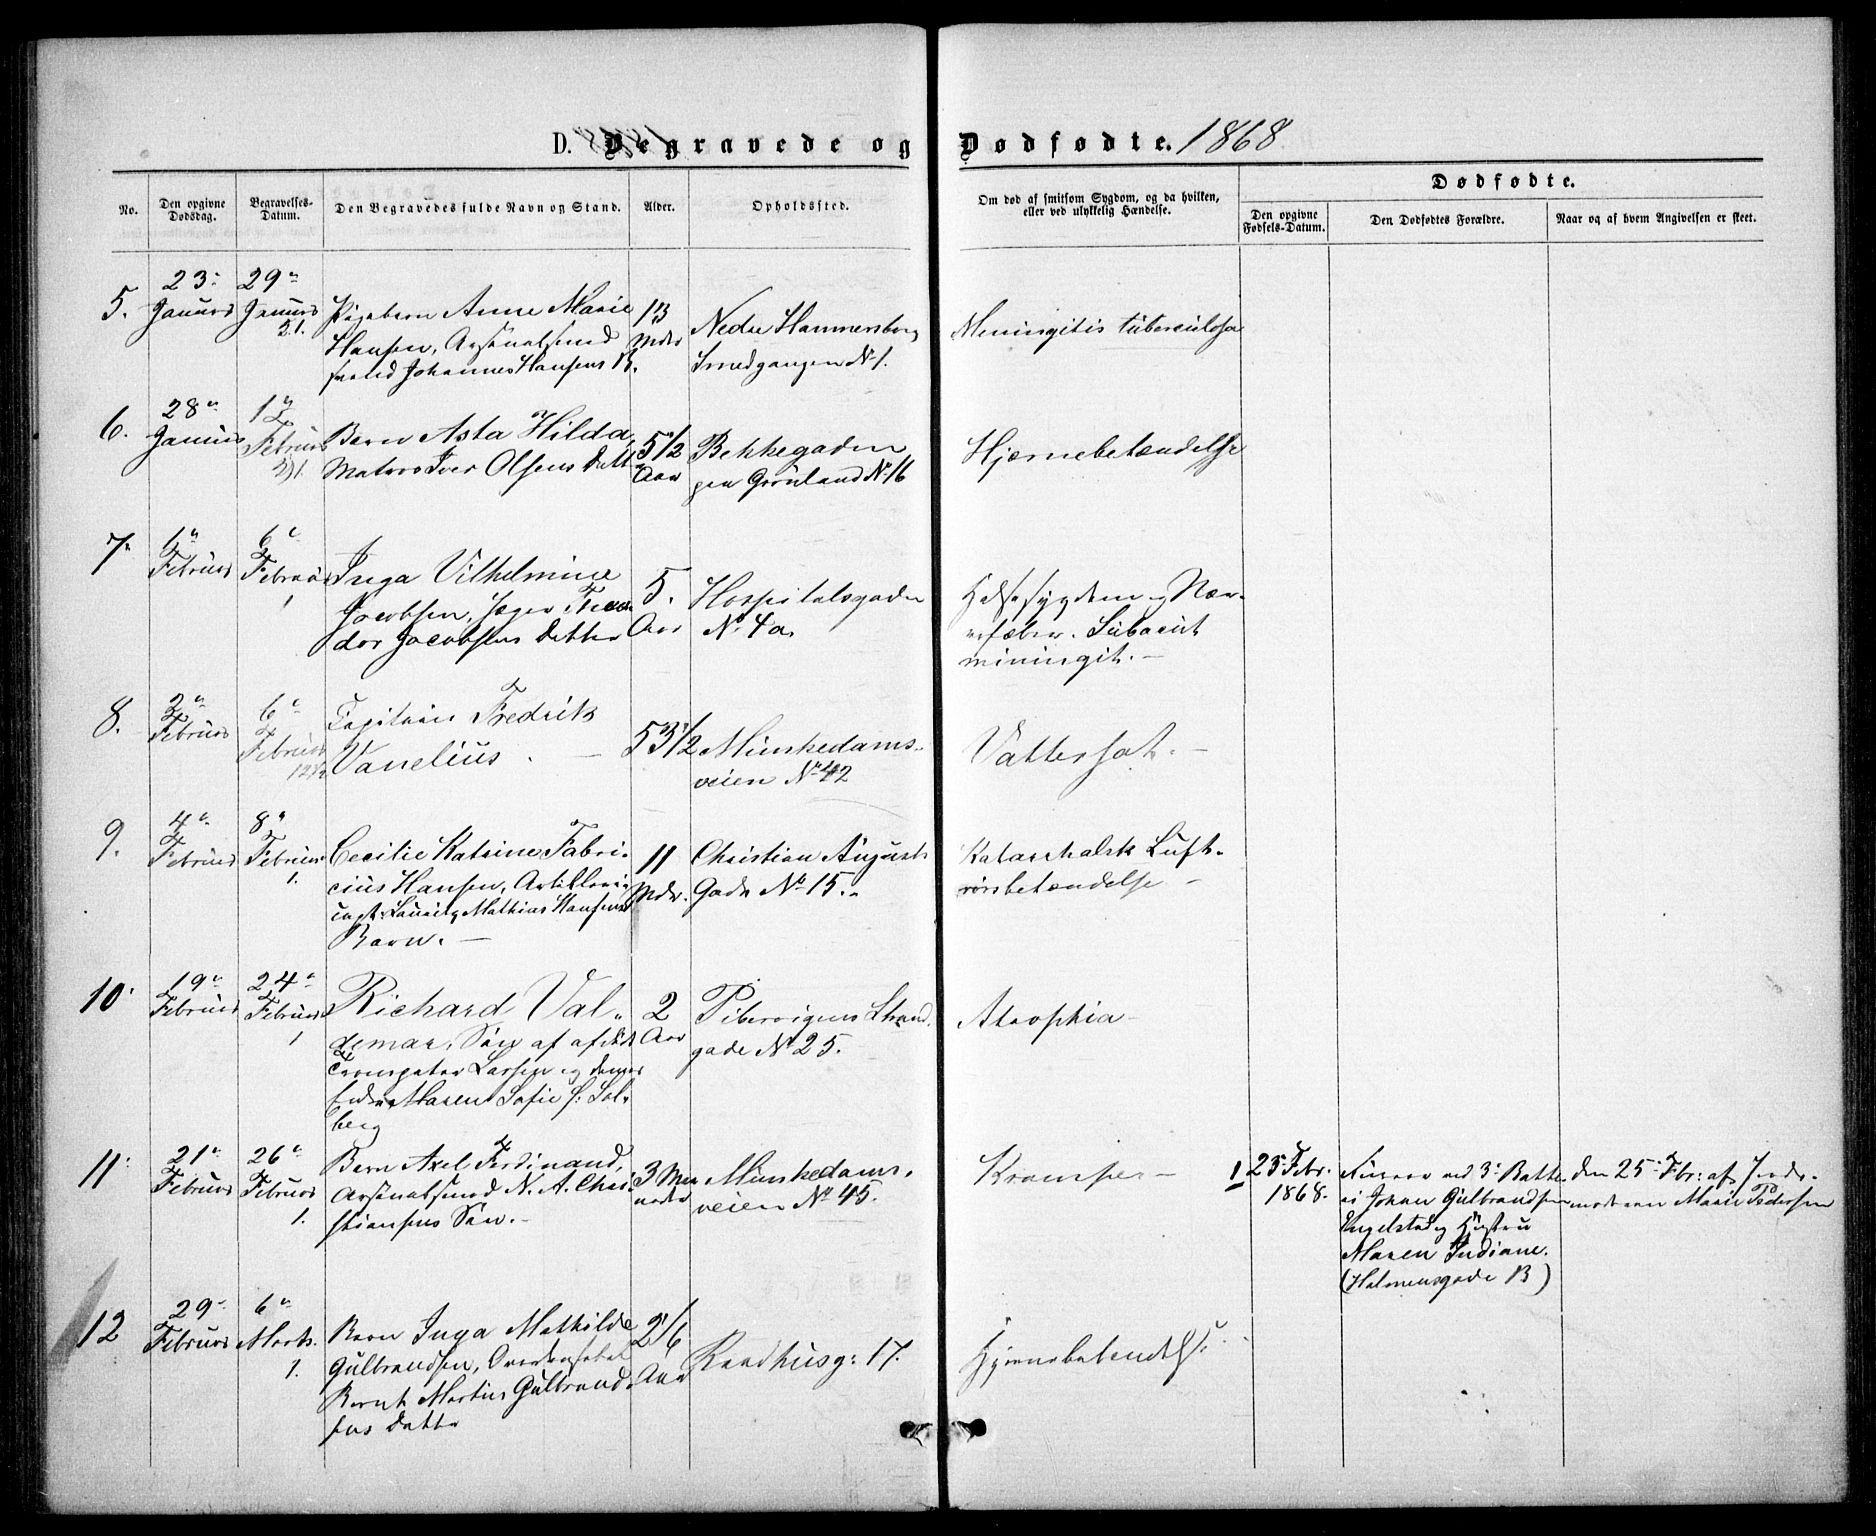 D. Begravede og Dødfødte. 1868
No.
Den opgivne Dødsdag.
Begravelses-Datum.
Den Begravedes fulde Navn og Stand.
Alder.
Opholdssted.
Om død af smitsom Sygdom, og da hvilken,
eller ved ulykkelig Hændelse.
Dødfødte.
Den opgivne Fødsels-Datum.
Den Dødfødtes Forældre.
Naar og af hvem Angivelsen er skeet.
5.
23
Januar
29
Januar
Pigebarn Anne Marie
Hansen, Arsenalsmed
Johannes Hansens B.
13
Mdr
Nedre Hammersborg
Smedgangen No 1.
Meningitis tuberculosa
6.
28
Januar
1
Februar
Barn Asta Hilda,
Matros Iver Olsens Datter
5 1/2
Aar
Bekkegaden
paa Grønland No 16
Hjernebetændelse
7.
1
Februar
6
Februar
1
Inga Vilhelmine
Jacobsen, Jæger Theo
dor Jacobsens Datter
5.
Aar
Hospitalsgaden
No 4a
Halssygdom og Ner-
vefeber. Subacut
miningit.
8.
2
Februar
6
Februar
Capitain Fredrik
Vanelius.
53 1/2
Munkedams-
veien No 42
Vattersot.
9.
4
Februar
8
Februar
1.
Cecilie Katrine Fabri-
cius Hansen, Artilleri
Lauritz Mathias Hansens
Barn.
11
Mdr.
Christian August
Gade No 15.
Katarrhalsk Luft-
rørsbetændelse
10
19
Februar
24
Februar
1
Richard Val-
demar, Søn af afskd
Larsen og
Maren Sofie f. Sol-
berg
2
Aar
Pibervigens Strand
gade No 25.
Atrophia
11
21
Februar
26
Februar
1.
Barn Axel Ferdinand,
Arsenalsmed N. A. Chri
stiansens Søn.
3 Maa
neder
Munkedams-
veien No 45.
Kramper
1
25 Febr.
1868.
ved 3 Batte
ri Johan Gulbrandsen
Engelstad og Hustru
Maren Indiane.
(Holmensgade 13)
den 25 Fbr: af Jorde-
moderen Marie Pedersen
12
29
Februar
6
Marts.
1.
Barn Inga Mathilde
Gulbrandsen,
Bernt Martin Gulbrand
sens Datter
2 1/6
Aar
Raadhusg: 17.
Hjernebetændelse